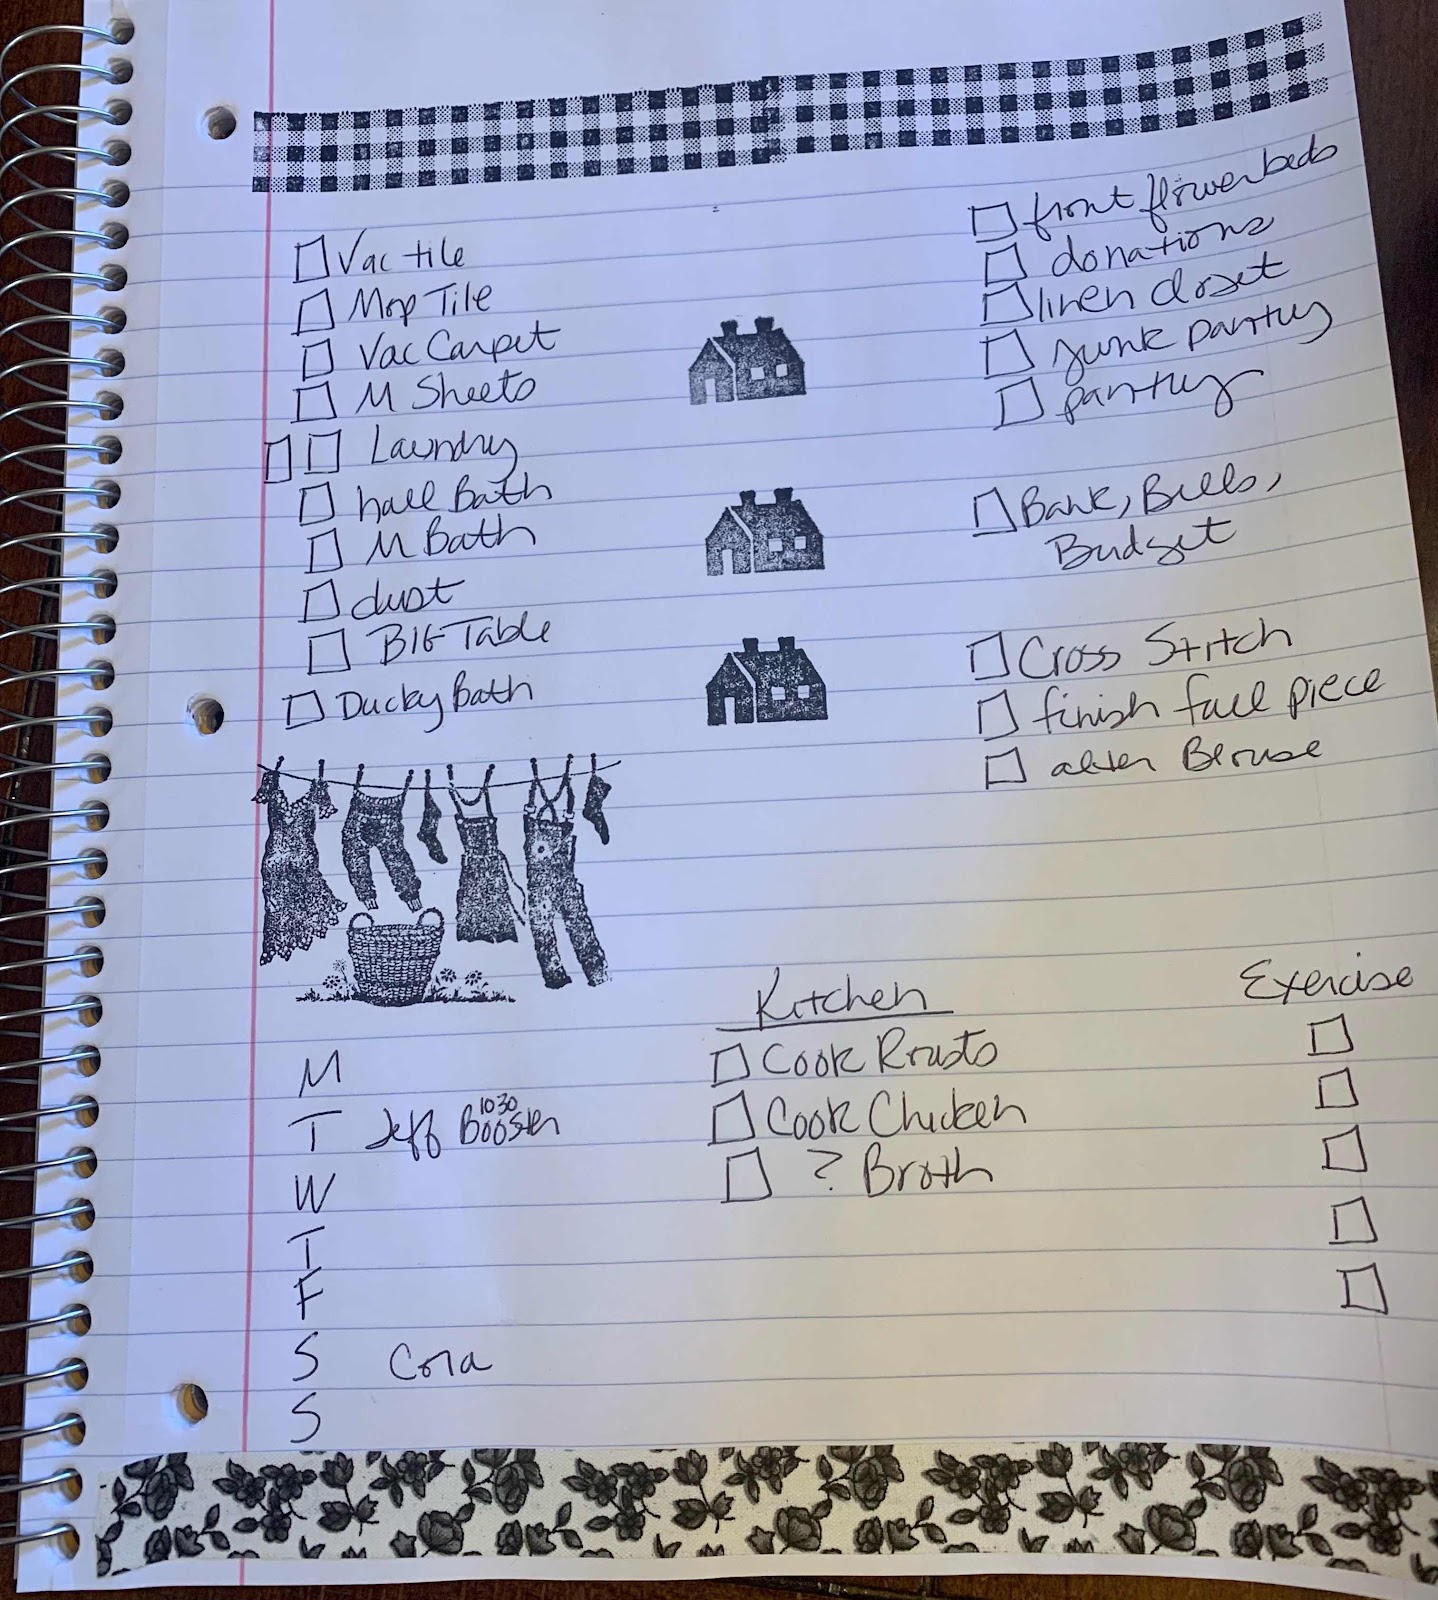 Vac tile
Mop Tile
Vac Carpet
M Sheets
Laundry
hall Bath
M Bath
dust
BIG Table
Ducky Bath
front flowerbeds
donations
linen closet
junk pantry
pantry
Bank, Bills,
Budget
Cross Stitch
finish fall piece
alter Blouse
M
T Jeff Booster 1030
W
T
F
S Cora
S
Kitchen
Cook Roasts
Cook Chicken
? Broth
Exercise